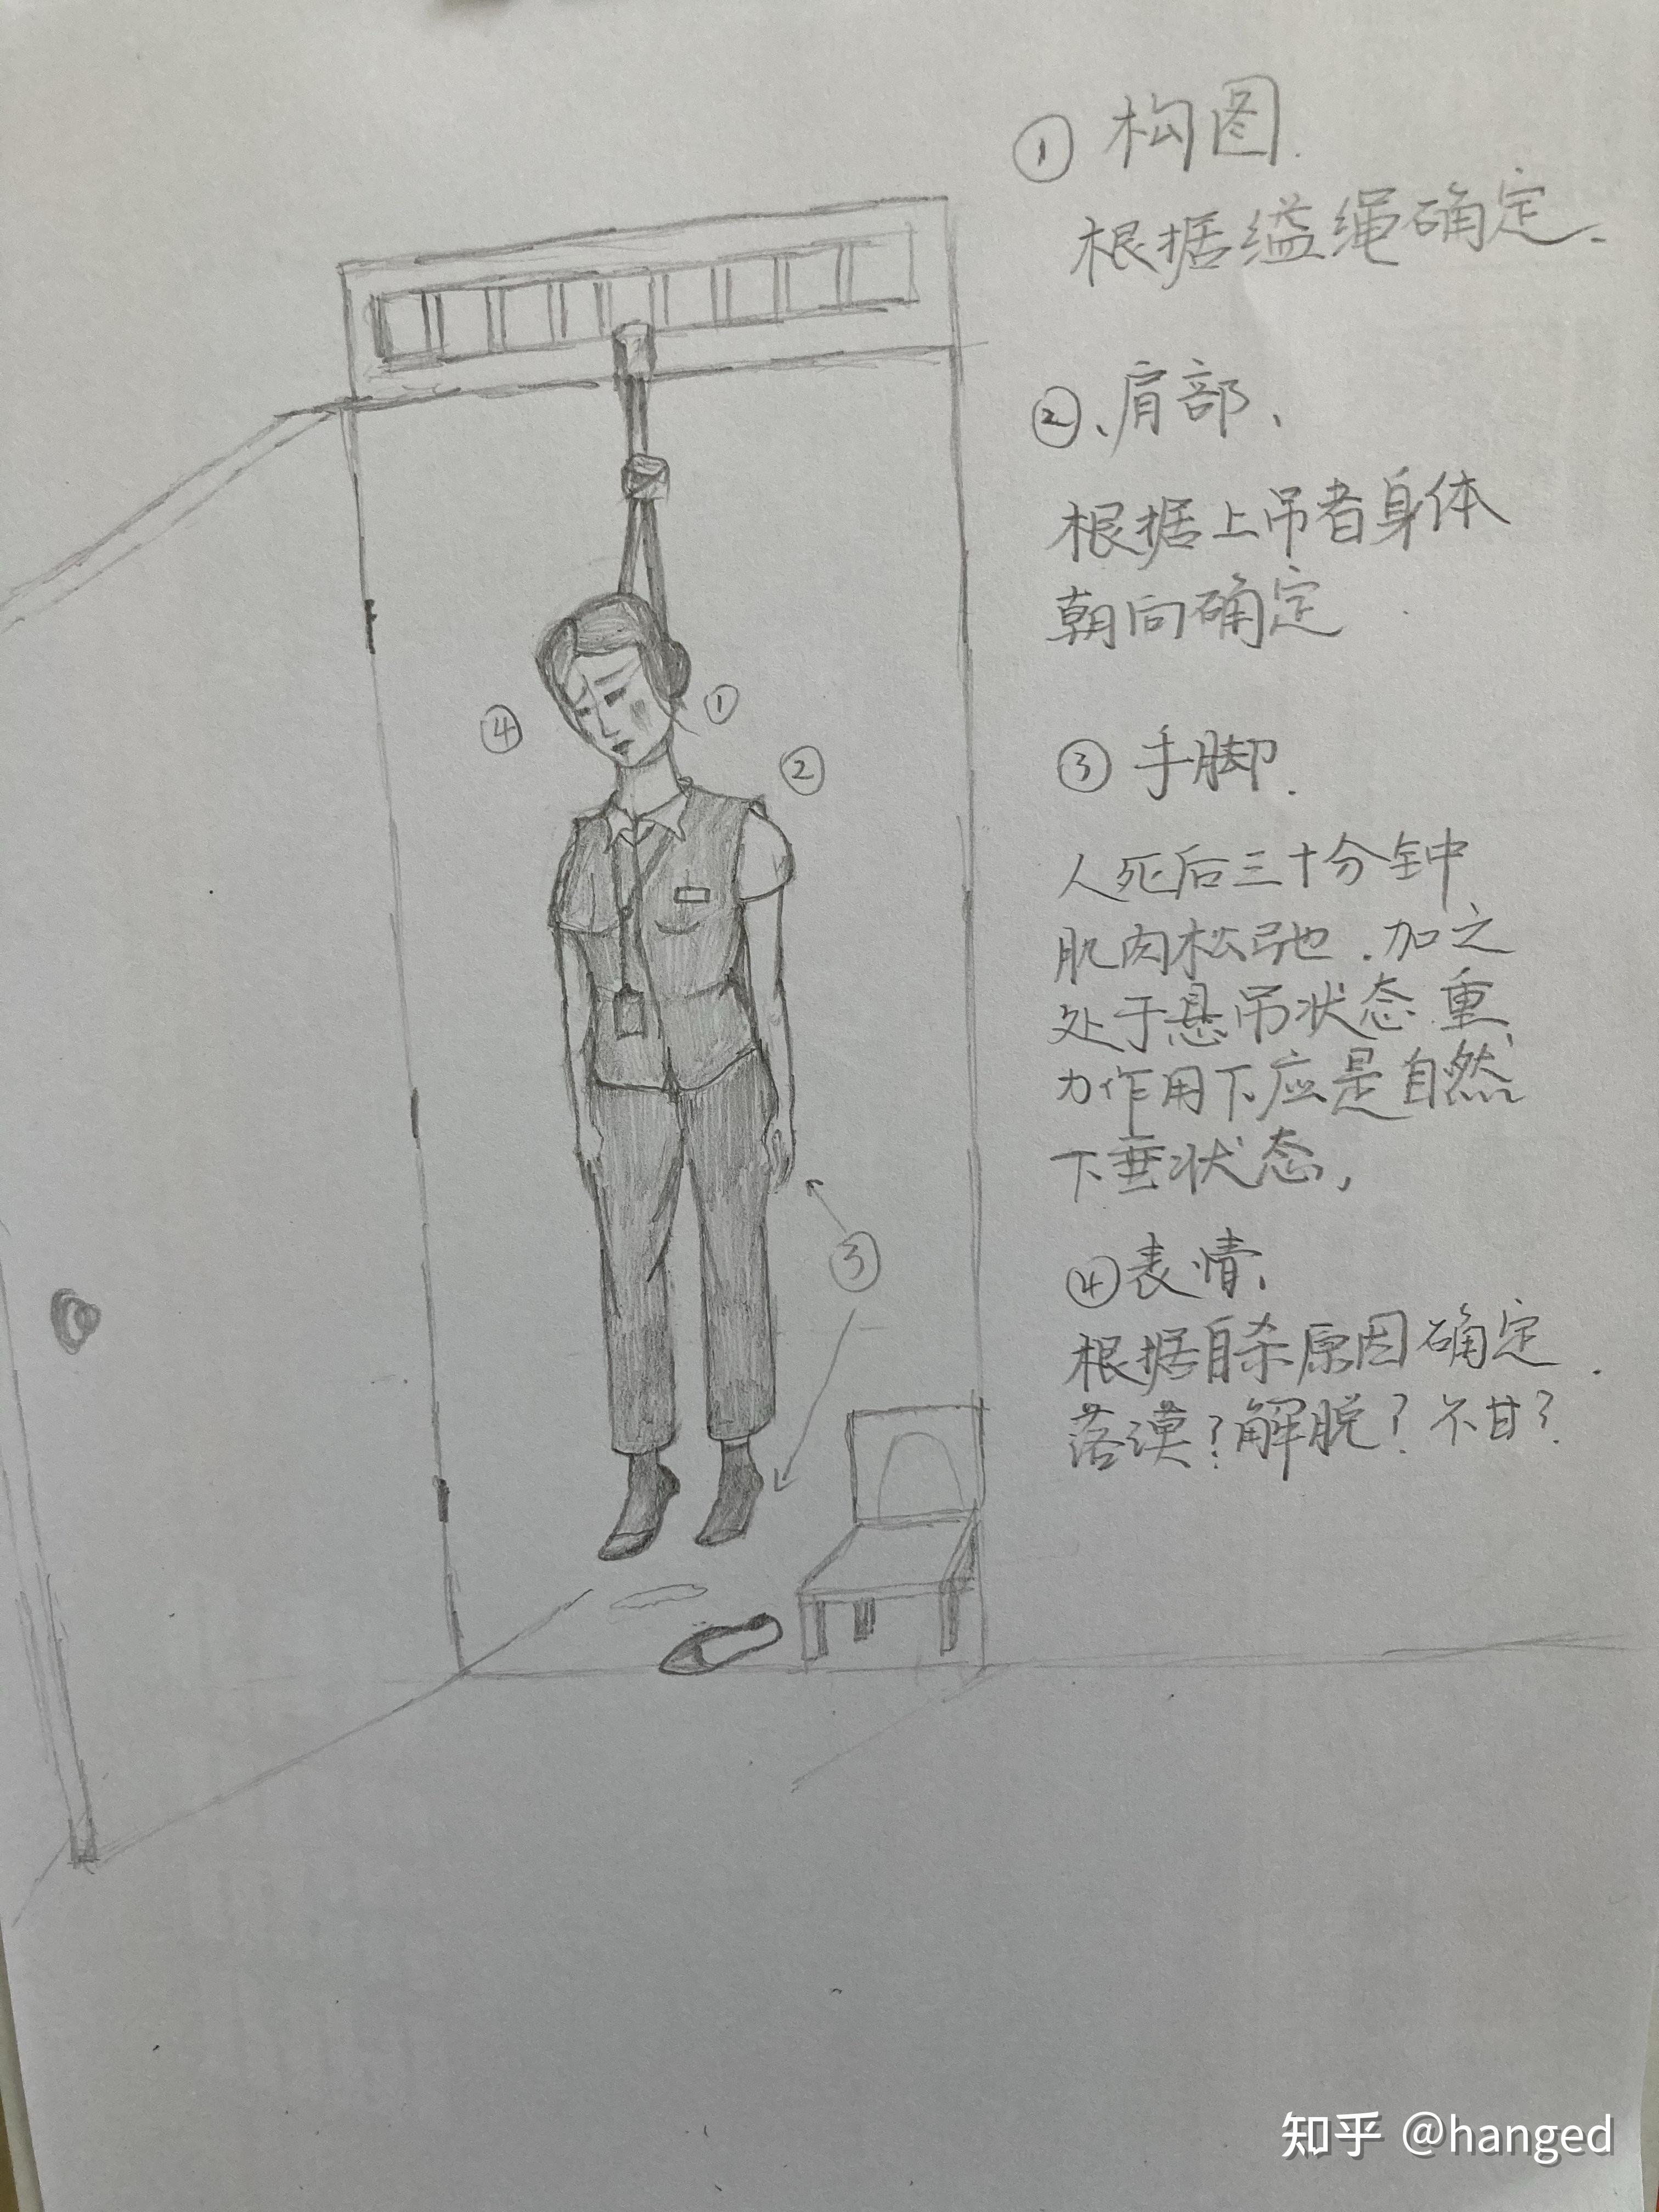 ① 构图.
根据缢绳确定.
②、肩部、
根据上吊者身体
朝向确定
③ 手脚.
人死后三十分钟
肌肉松弛.加之
处于悬吊状态.重
力作用下应是自然
下垂状态,
④表情、
根据自杀原因确定.
落漠?解脱?不甘?
④
①
②
③
知乎 @hanged